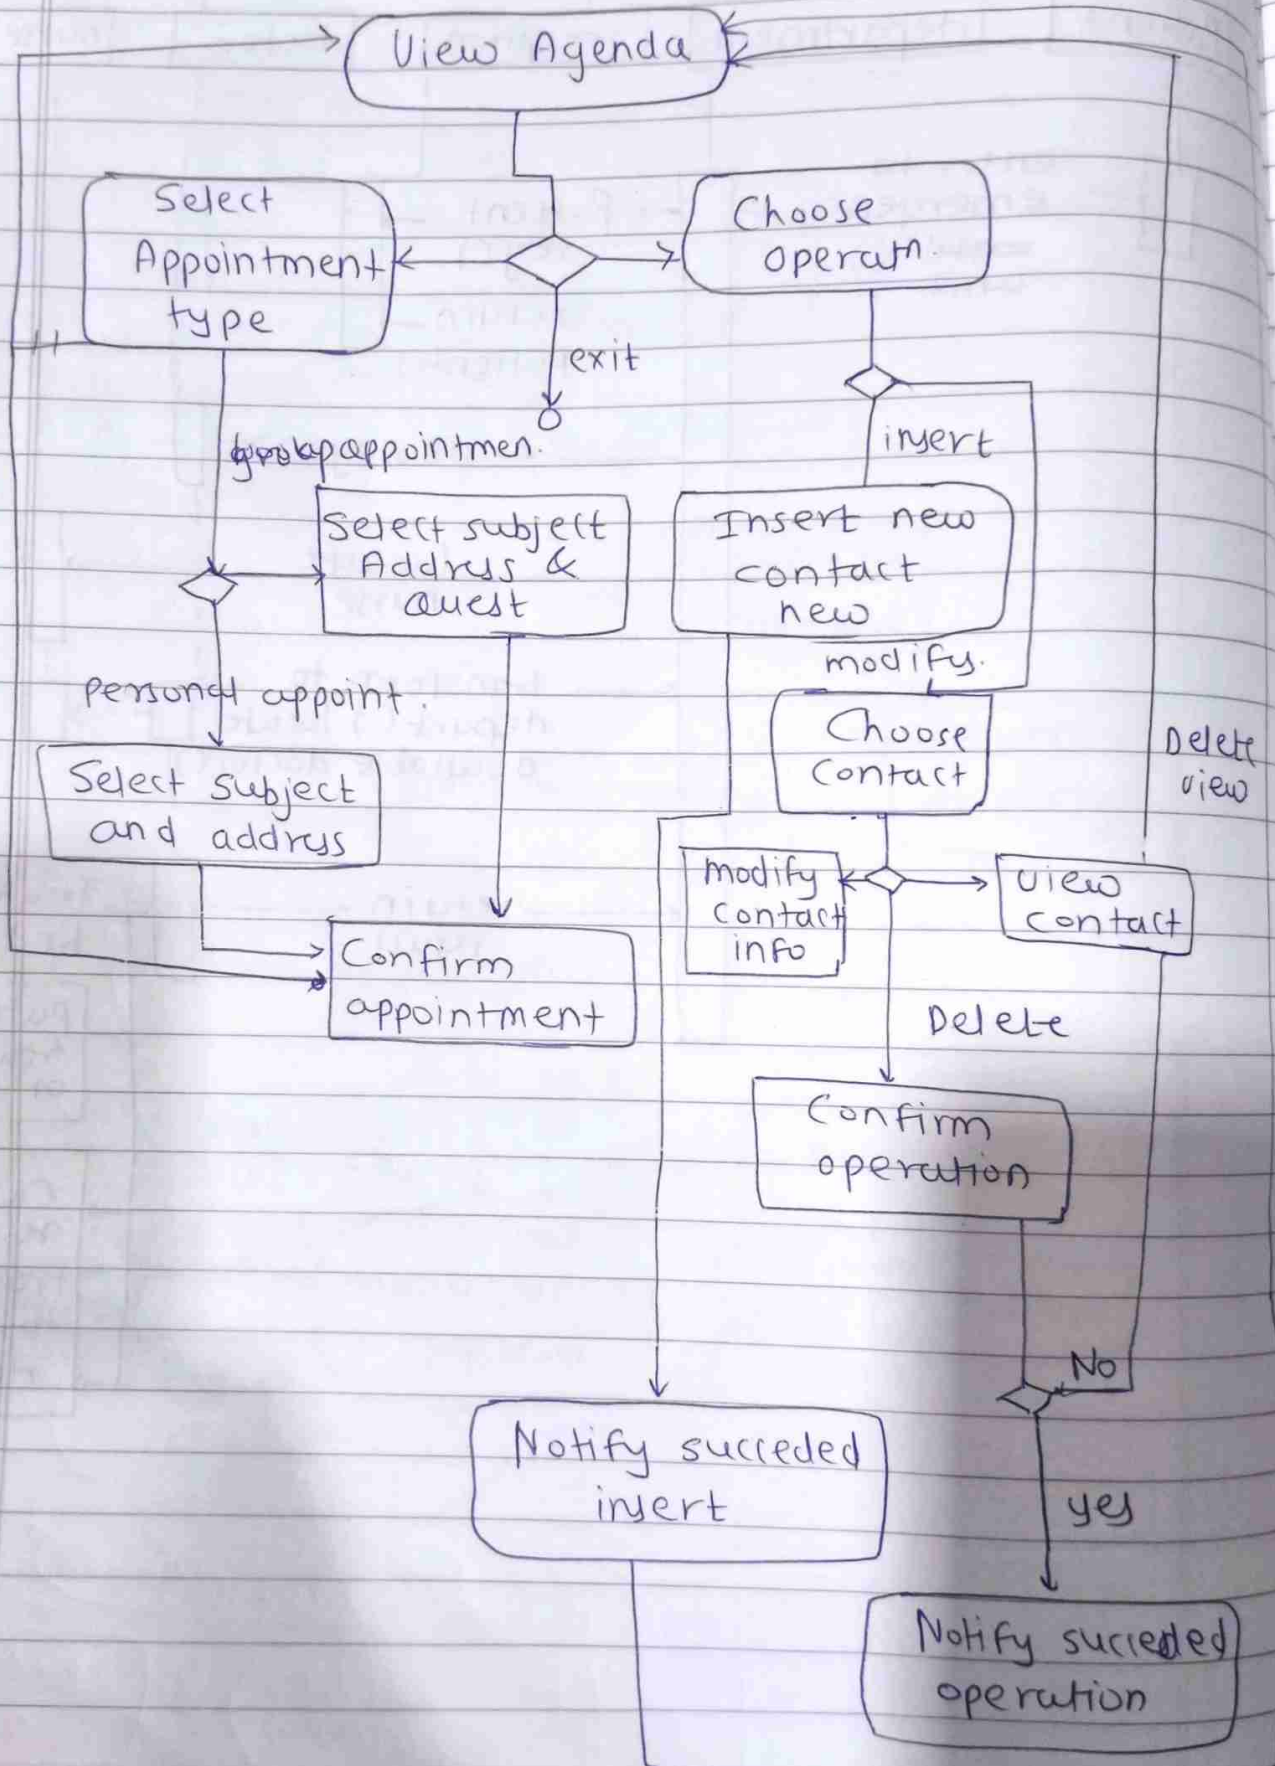 View Agenda
Select
Appointment
type
Choose
operatn.
exit
insert
appointmen.
Select subject
Address &
Quest
Insert new
contact
new
modify.
personal appoint.
Choose
contact
Delete
view
Select subject
and address
modify
contact
info
view
contact
Confirm
appointment
Delete
Confirm
operation
No
Notify succeded
insert
yes
Notify succeded
operation